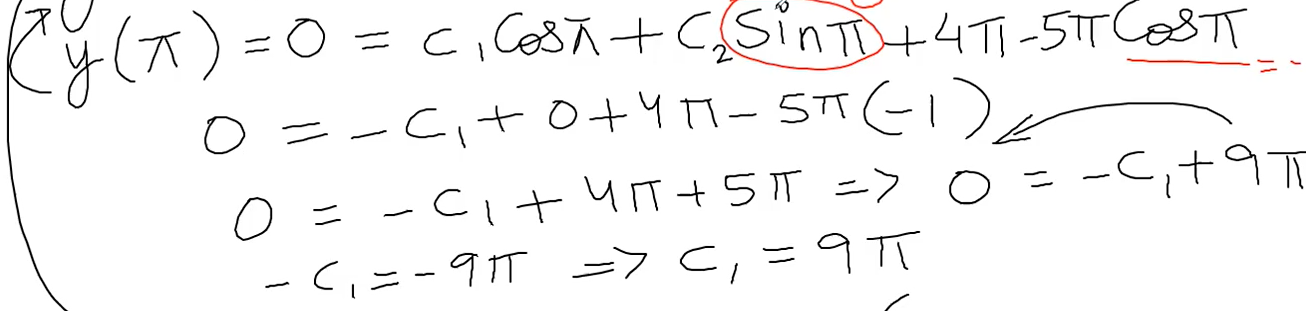 y(π) = 0 = c₁ Cosπ + C₂ Sinπ + 4π - 5π Cosπ = -
0 = - C₁ + 0 + 4π - 5π (-1)
0 = - C₁ + 4π + 5π => 0 = - C₁ + 9π
- C₁ = - 9π => C₁ = 9π